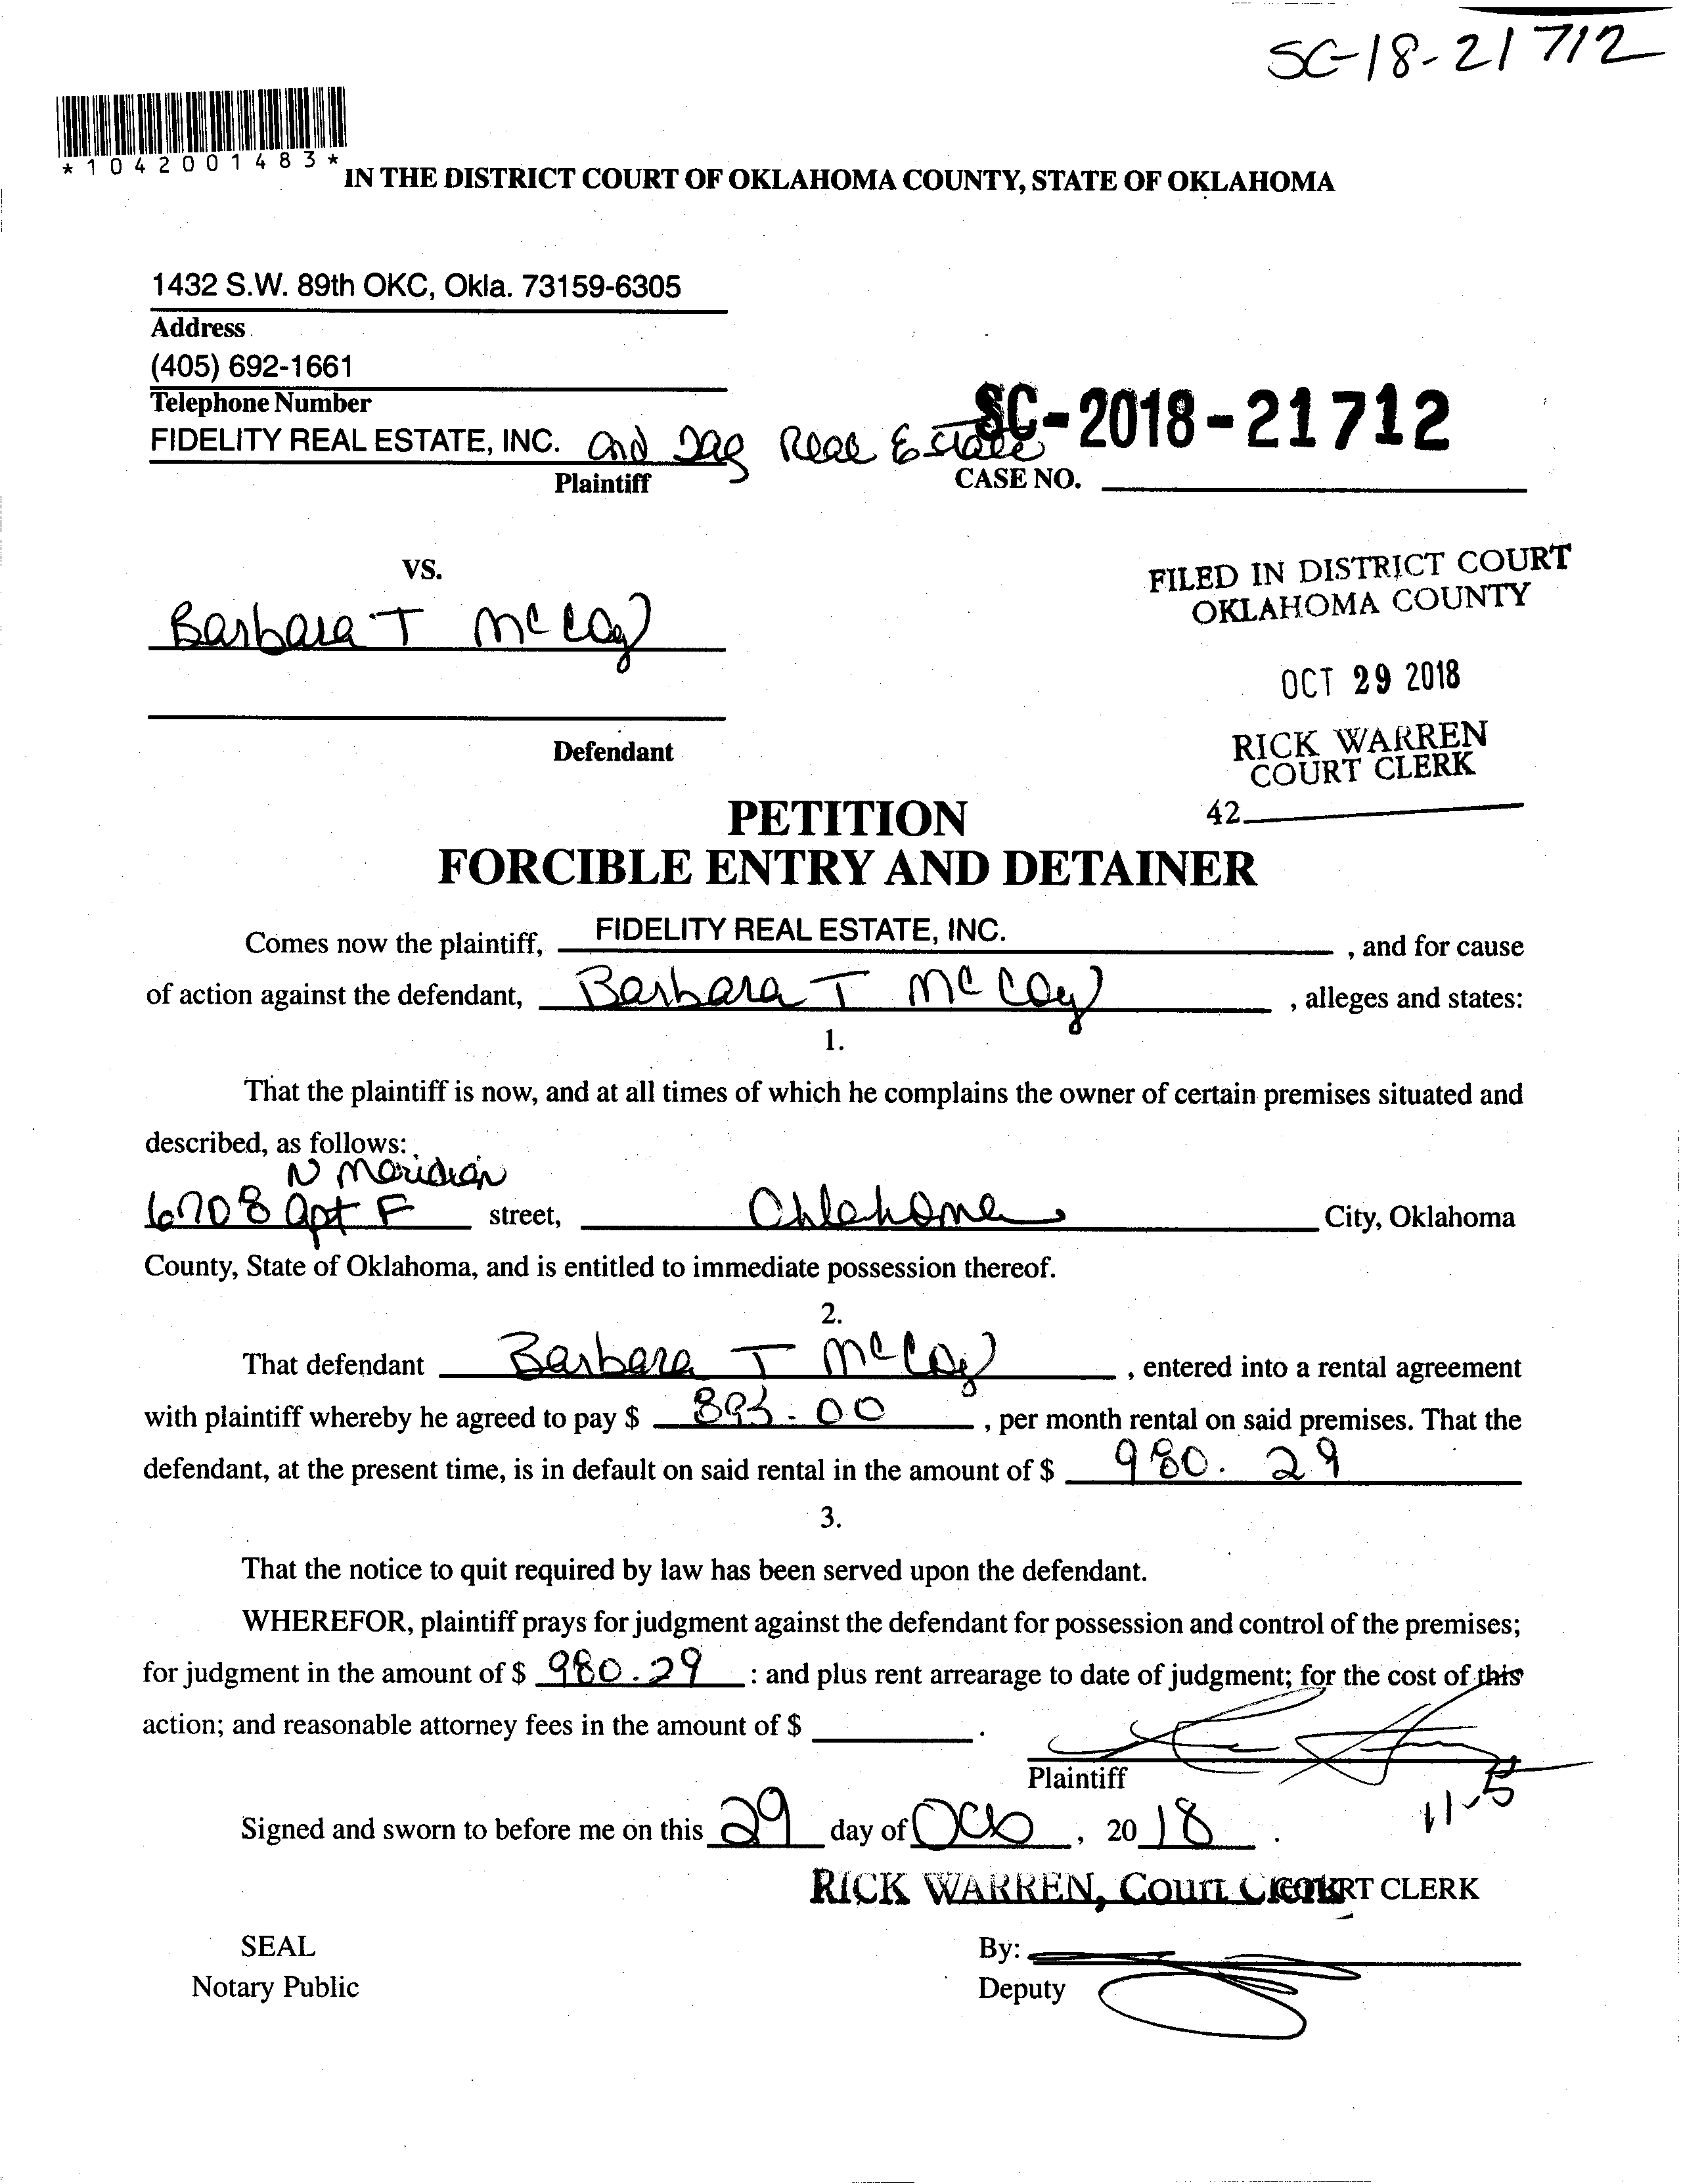 SC-18-21712
*1042001483*
IN THE DISTRICT COURT OF OKLAHOMA COUNTY, STATE OF OKLAHOMA
1432 S.W. 89th OKC, Okla. 73159-6305
Address
(405) 692-1661
Telephone Number
FIDELITY REAL ESTATE, INC. and Real Estate
Plaintiff
SC-2018-21712
CASE NO.
VS.
Barbara T McCoy
Defendant
FILED IN DISTRICT COURT
OKLAHOMA COUNTY
OCT 29 2018
RICK WARREN
COURT CLERK
42
PETITION
FORCIBLE ENTRY AND DETAINER
Comes now the plaintiff, FIDELITY REAL ESTATE, INC. , and for cause
of action against the defendant, Barbara T McCoy , alleges and states:
1.
That the plaintiff is now, and at all times of which he complains the owner of certain premises situated and
described, as follows:
N Meridian
6708 Apt F street, Oklahoma City, Oklahoma
County, State of Oklahoma, and is entitled to immediate possession thereof.
2.
That defendant Barbara T McCoy , entered into a rental agreement
with plaintiff whereby he agreed to pay $ .00 , per month rental on said premises. That the
defendant, at the present time, is in default on said rental in the amount of $ 980.29
3.
That the notice to quit required by law has been served upon the defendant.
WHEREFOR, plaintiff prays for judgment against the defendant for possession and control of the premises;
for judgment in the amount of $ 980.29 : and plus rent arrearage to date of judgment; for the cost of this
action; and reasonable attorney fees in the amount of $ .
Plaintiff
11-5
Signed and sworn to before me on this 29 day of Oct , 2018 .
RICK WARREN, Court Clerk COURT CLERK
SEAL
Notary Public
By:
Deputy